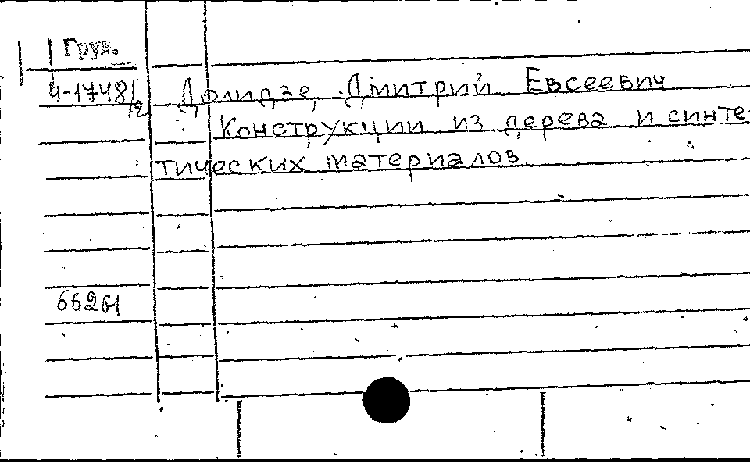 Груз.
4-1748/2
Долидзе, Дмитрий Евсеевич
Конструкции из дерева и синте-
тических материалов